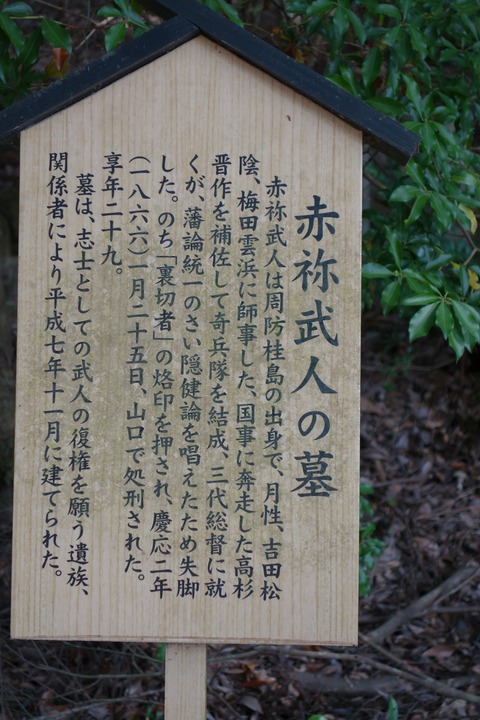 赤祢武人の墓
赤祢武人は周防桂島の出身で、月性、吉田松
陰、梅田雲浜に師事した、国事に奔走した高杉
晋作を補佐して奇兵隊を結成、三代総督に就
くが、藩論統一のさい隠健論を唱えたため失脚
した。のち「裏切者」の烙印を押され、慶応二年
(一八六六)一月二十五日、山口で処刑された。
享年二十九。
墓は、志士としての武人の復権を願う遺族、
関係者により平成七年十一月に建てられた。